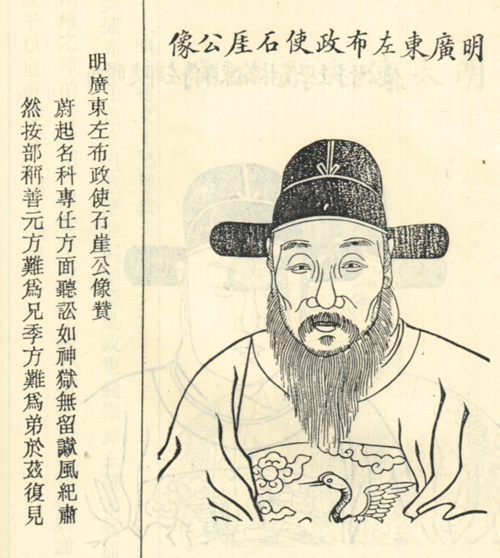 明廣東左布政使石厓公像
明廣東左布政使石崖公像贊
蔚起名科專任方面聽訟如神獄無留讞風紀肅
然按部稱善元方難爲兄季方難爲弟於茲復見